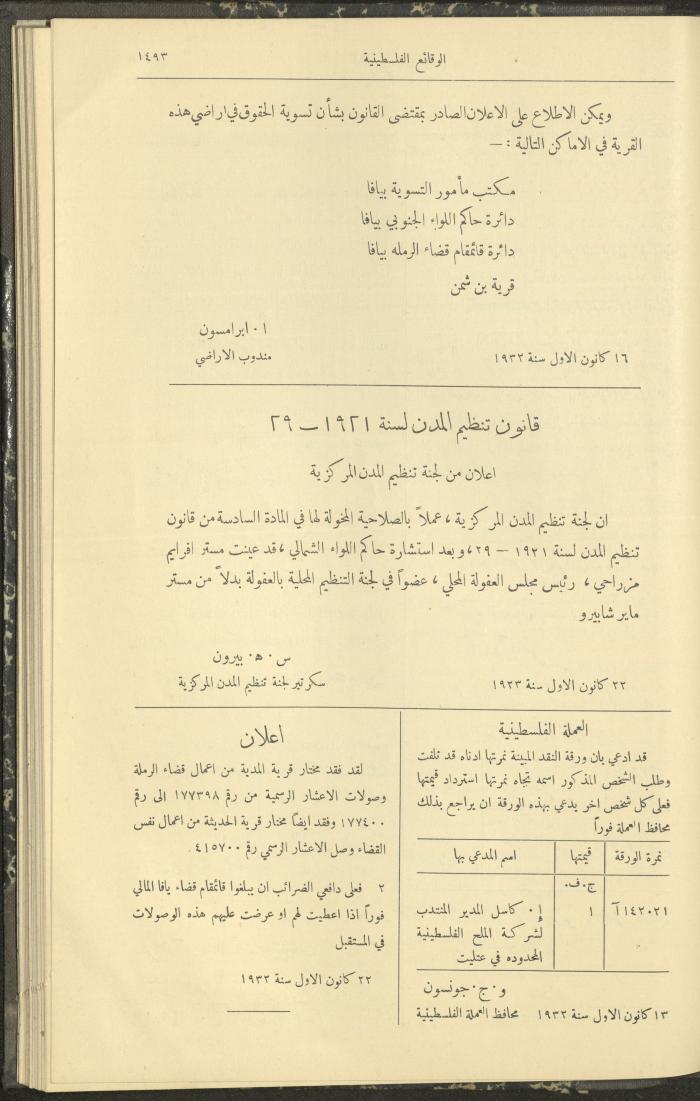 الوقائع الفلسطينية ١٤٩٣
ويمكن الاطلاع على الاعلان الصادر بمقتضى القانون بشأن تسوية الحقوق في اراضي هذه
القرية في الاماكن التالية : —
مكتب مأمور التسوية بيافا
دائرة حاكم اللواء الجنوبي بيافا
دائرة قائمقام قضاء الرمله بيافا
قرية بن شمن
ا . ابرامسون
١٦ كانون الاول سنة ١٩٣٢ مندوب الاراضي
قانون تنظيم المدن لسنة ١٩٢١ — ٢٩
اعلان من لجنة تنظيم المدن المركزية
ان لجنة تنظيم المدن المركزية ، عملاً بالصلاحية المخولة لها في المادة السادسة من قانون
تنظيم المدن لسنة ١٩٢١ — ٢٩ ، وبعد استشارة حاكم اللواء الشمالي ، قد عينت مستر افرايم
مزراحي ، رئيس مجلس العفولة المحلي ، عضواً في لجنة التنظيم المحلية بالعفولة بدلاً من مستر
ماير شابيرو
س . ه . بيرون
٢٢ كانون الاول سنة ١٩٢٣ سكرتير لجنة تنظيم المدن المركزية
العملة الفلسطينية
قد ادعي بان ورقة النقد المبينة نمرتها ادناه قد تلفت
وطلب الشخص المذكور اسمه تجاه نمرتها استرداد قيمتها
فعلى كل شخص اخر يدعي بهذه الورقة ان يراجع بذلك
محافظ العملة فوراً
نمرة الورقة قيمتها اسم المدعي بها
ج.ف.
١٤٢٠٢١ آ ١ إ . كاسل المدير المنتدب
لشركة الملح الفلسطينية
المحدوده في عتليت
و . ج . جونسون
١٣ كانون الاول سنة ١٩٣٢ محافظ العملة الفلسطينية
اعلان
لقد فقد مختار قرية المدية من اعمال قضاء الرملة
وصولات الاعشار الرسمية من رقم ١٧٧٣٩٨ الى رقم
١٧٧٤٠٠ وفقد ايضاً مختار قرية الحديثة من اعمال نفس
القضاء وصل الاعشار الرسمي رقم ٤١٥٧٠٠
٢ فعلى دافعي الضرائب ان يبلغوا قائمقام قضاء يافا المالي
فوراً اذا اعطيت لهم او عرضت عليهم هذه الوصولات
في المستقبل
٢٢ كانون الاول سنة ١٩٣٢